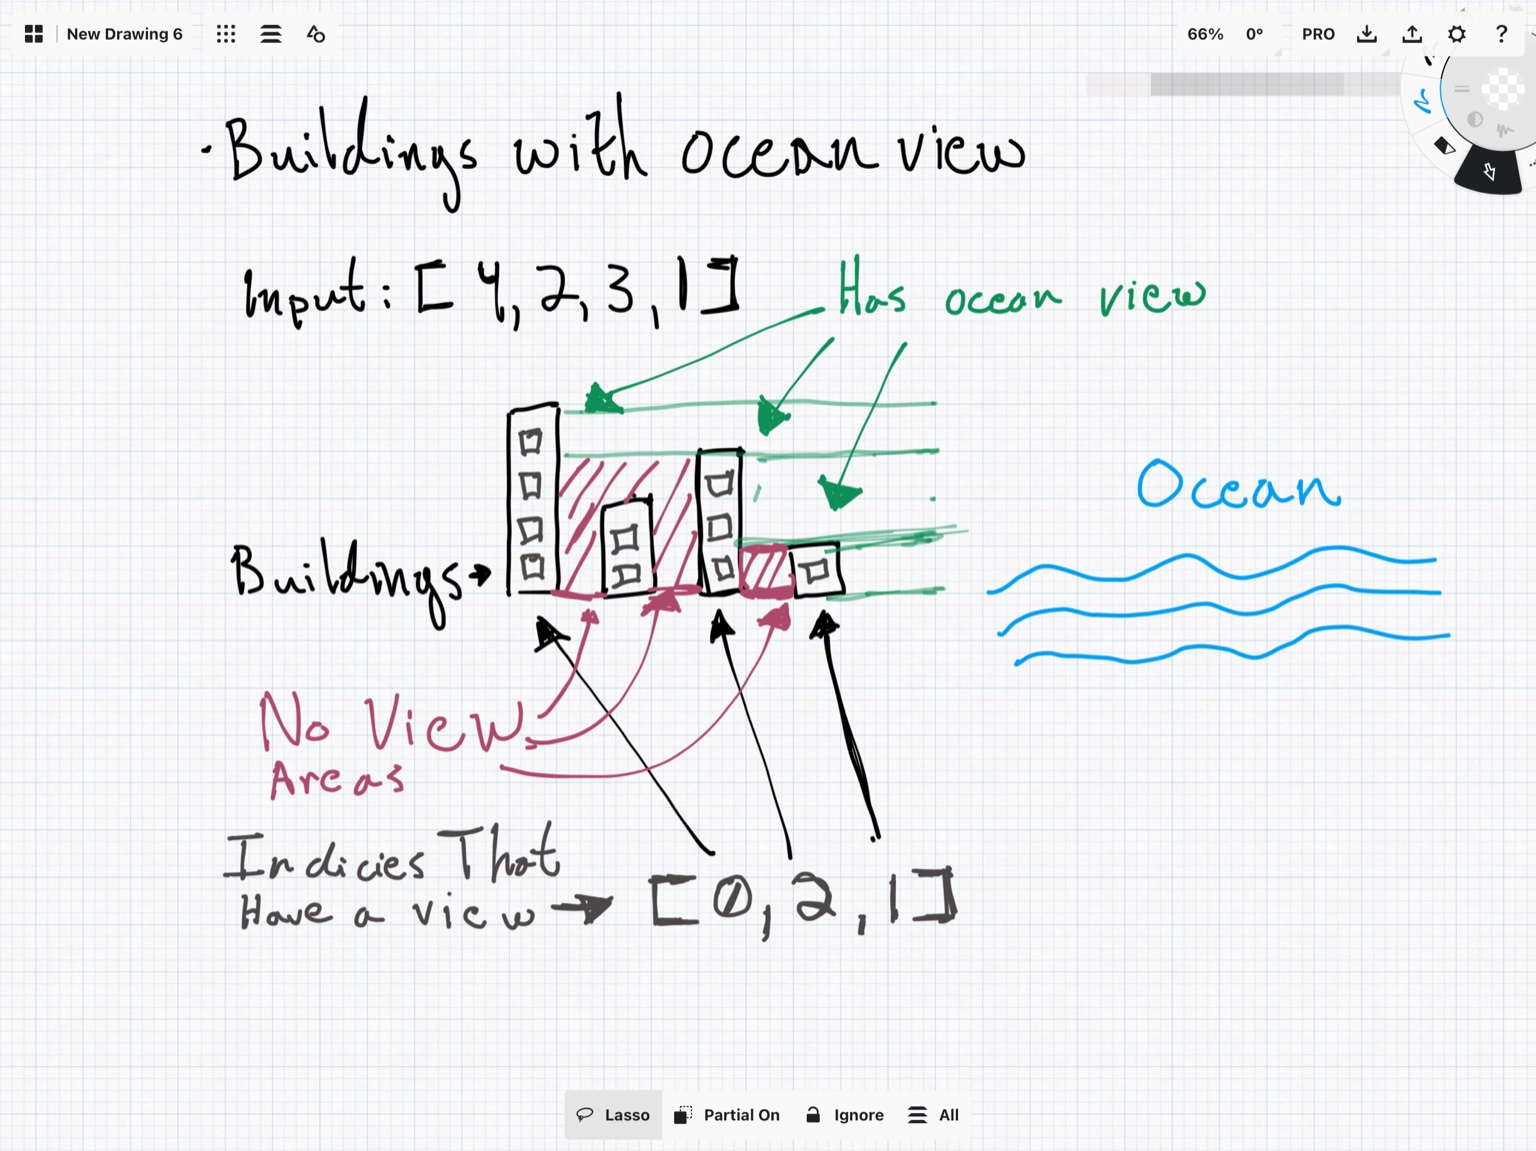 New Drawing 6
66% 0° PRO ?
· Buildings with ocean view
Input: [4, 2, 3, 1]
Has ocean view
Ocean
Buildings→
No View
Areas
Indicies That
Have a view → [0, 2, 1]
Lasso Partial On Ignore All